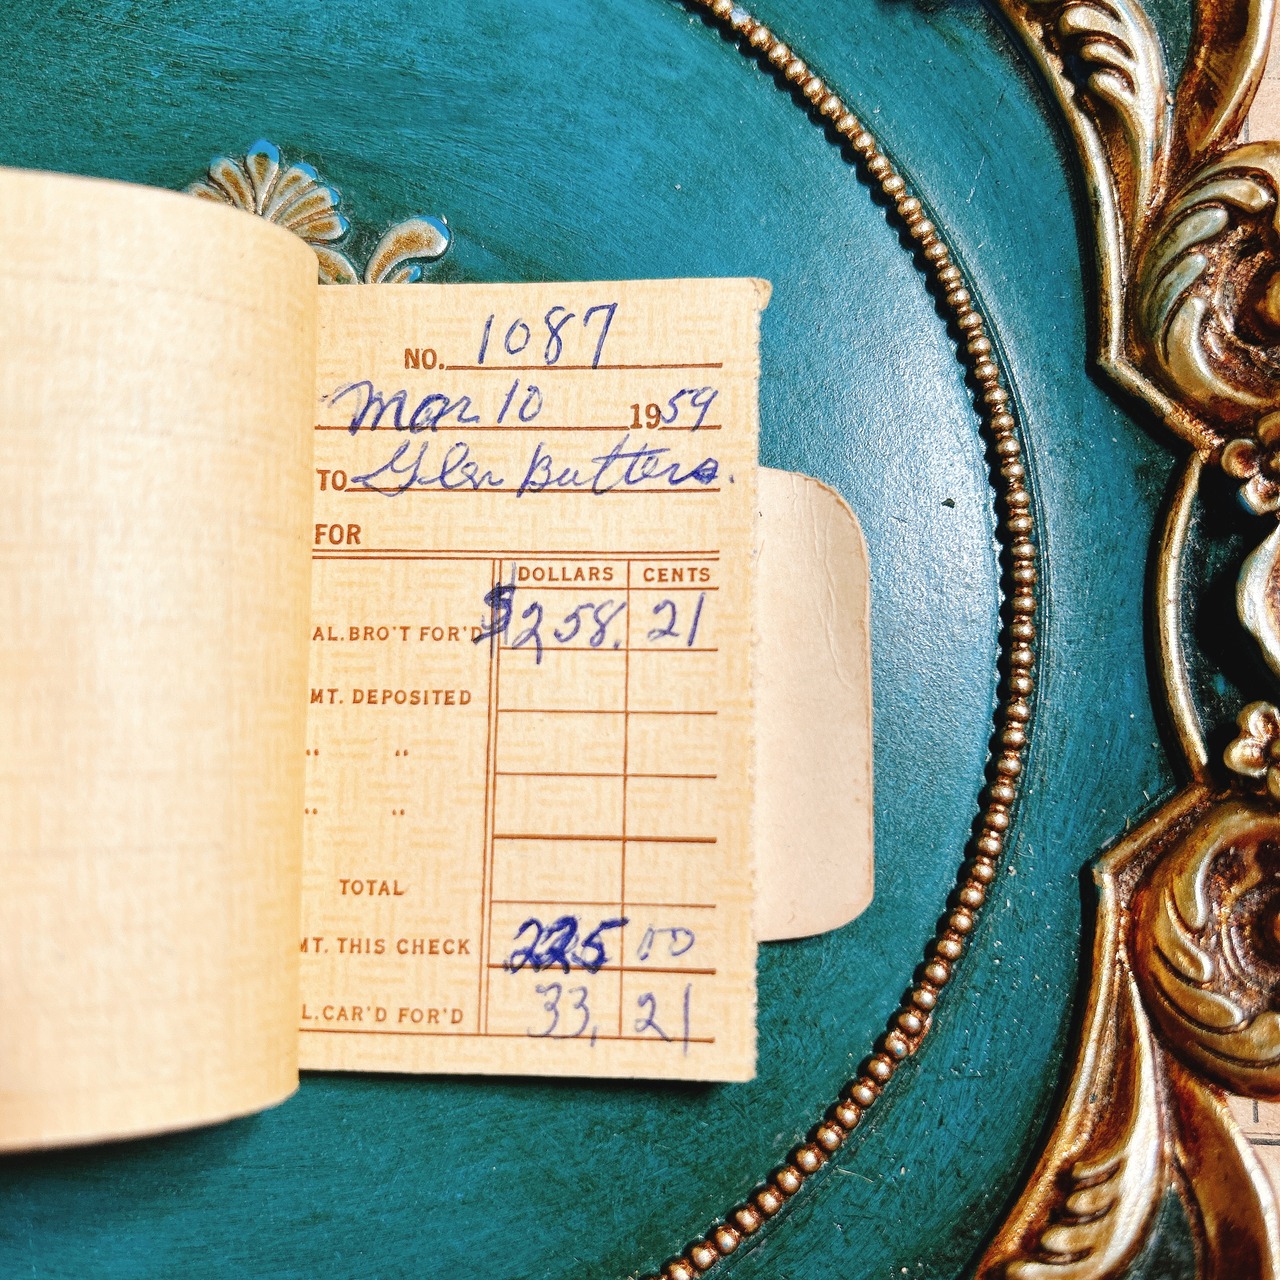 NO. 1087
Mar 10 1959
TO Glen Butters.
FOR
DOLLARS CENTS
AL. BRO'T FOR'D $258. 21
MT. DEPOSITED
" "
" "
TOTAL
MT. THIS CHECK 225 00
L. CAR'D FOR'D 33, 21